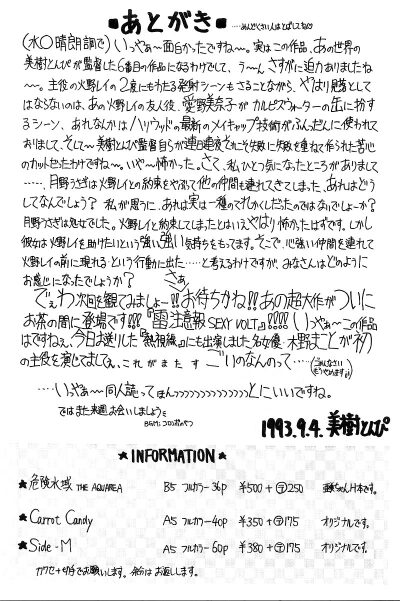 ★あとがき★
……めんどくさい人はとばしてね♡
(水○晴朗調で) いっやぁ〜面白かったですね〜。実はこの作品、あの世界の
美樹とんぴが監督した6番目の作品になるわけでして、う〜ん さすがに迫力ありましたね
〜。主役の火野レイの2度にもわたる発射シーンもさることながら、やはり見落として
はならないのは、あの火野レイの友人役、愛野美奈子がカルピスウォーターの缶に扮す
るシーン、あれなんかはハリウッドの最新のメイキャップ技術がふんだんに使われて
おりまして、そして〜美樹とんぴ監督自らが連日連夜それこそ失敗に失敗を重ねて作られた苦心
のカットだったわけですね〜。いや〜怖かった。さて、私ひとつ気になったところがありまして
……月野うさぎは火野レイとの約束をやぶって他の仲間も連れてきてしまった、あれはどう
してなんでしょう？ 私が思うに、あれは実は一種のてれかくしだったのではないでしょーか？
月野うさぎは処女でした。火野レイと約束してしまったとはいえやはり怖かったはずです。しかし
彼女は火野レイを助けたいという強い強い気持ちをもってます。そこで、心強い仲間を連れて
火野レイの前に現れる…という行動に出た……と考えるわけですが、みなさんはどのように
お感じになったでしょうか？ さぁ
でぇわ次回を観てみましょー!! お待ちかね!! あの超大作がついに
お茶の間に登場です!!!『雷注意報 SEXY VOLT』!!!! いっやぁ〜この作品
はですねぇ、今日お送りした『熱視線』にも出演しました名女優・木野まことが初
の主役を演じてましてぇ、これがまた すごいのなんのって……(ごめんなさい もうやめます)
……いっやぁ〜同人誌ってほんっっっっっっっっっっとにいいですね。
ではまた来週お会いしましょう。
BGM:コロンボのやつ
1993.9.4. 美樹とんぴ
★INFORMATION★
★危険水域 THE AQUAREA B5 フルカラー36p ¥500+〒250 亜美ちゃん1本です。
★Carrot Candy A5 フルカラー40p ¥350+〒175 オリジナルです。
★Side-M A5 フルカラー60p ¥380+〒175 オリジナルです。
カワセ+切手でお願いします。余分はお返しします。